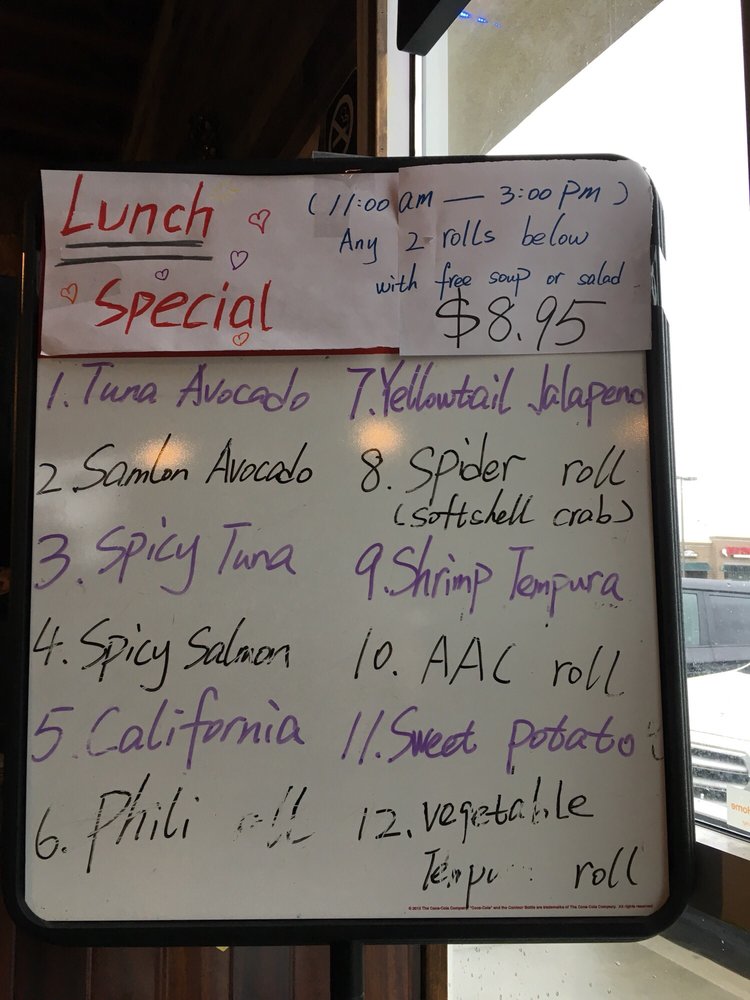 Lunch
Special
(11:00 am — 3:00 pm)
Any 2 rolls below
with free soup or salad
$8.95
1. Tuna Avocado
2 Samlon Avocado
3. Spicy Tuna
4. Spicy Salmon
5 California
6. Phili roll
7. Yellowtail Jalapeno
8. Spider roll
(softshell crab)
9. Shrimp Tempura
10. AAC roll
11. Sweet potato
12. vegetable
Tempura roll
© 2012 The Coca-Cola Company. "Coca-Cola" and the Contour Bottle are trademarks of The Coca-Cola Company. All rights reserved.